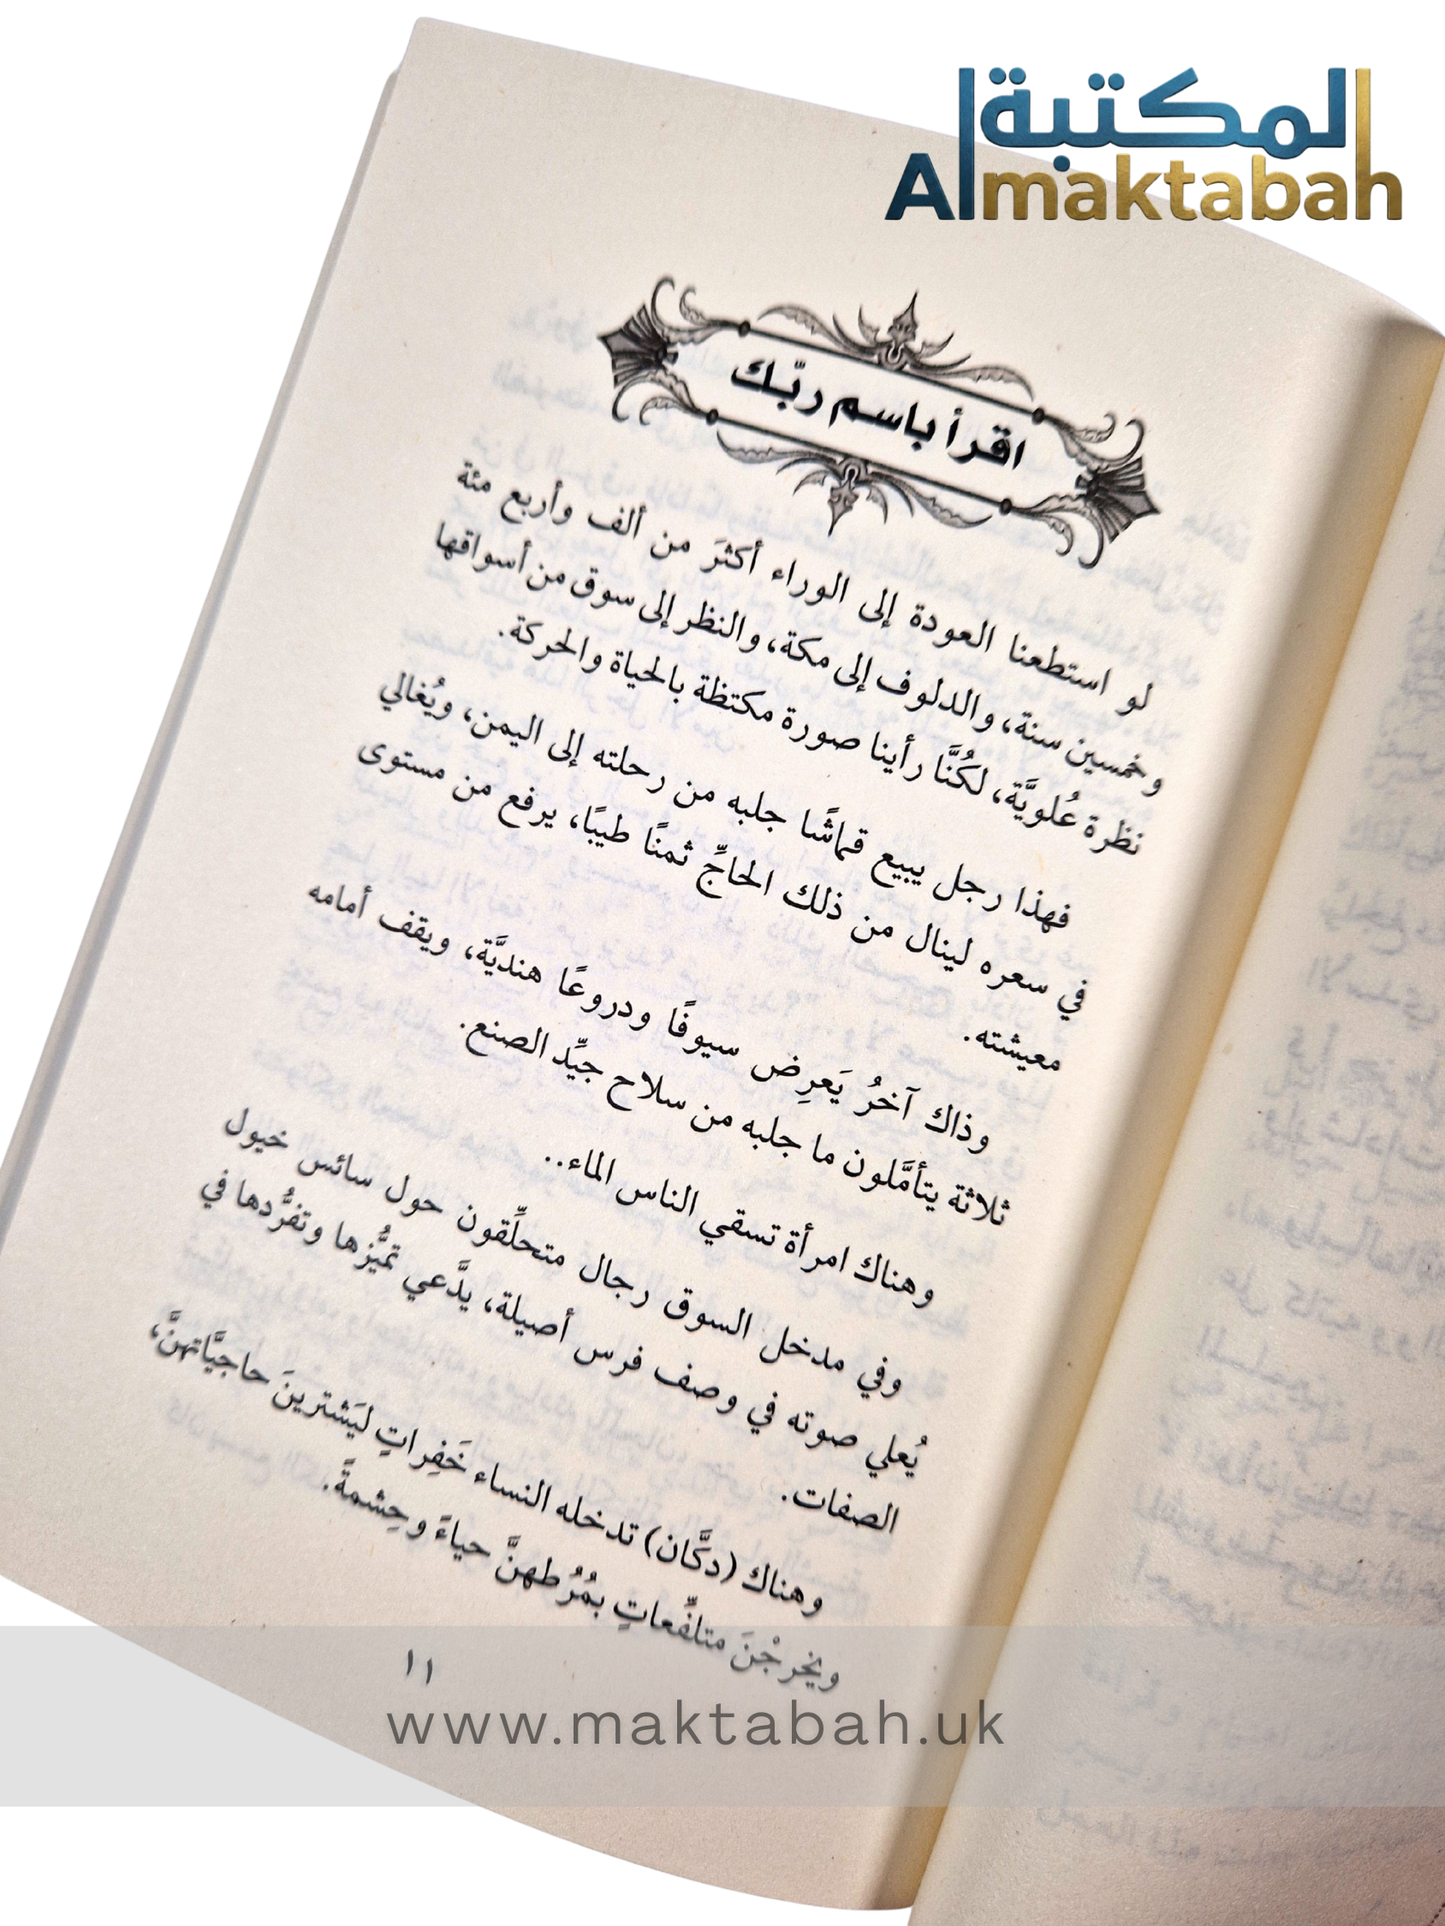 المكتبة
Almaktabah
اقرأ باسم ربّك
لو استطعنا العودة إلى الوراء أكثرَ من ألف وأربع مئة
وخمسين سنة، والدلوف إلى مكة، والنظر إلى سوق من أسواقها
نظرة عُلويَّة، لكُنَّا رأينا صورة مكتظة بالحياة والحركة.
فهذا رجل يبيع قماشًا جلبه من رحلته إلى اليمن، ويُغالي
في سعره لينال من ذلك الحاجِّ ثمنًا طيبًا، يرفع من مستوى
معيشته.
وذاك آخرُ يَعرِض سيوفًا ودروعًا هنديَّة، ويقف أمامه
ثلاثة يتأمَّلون ما جلبه من سلاح جيِّد الصنع.
وهناك امرأة تسقي الناس الماء..
وفي مدخل السوق رجال متحلِّقون حول سائس خيول
يُعلي صوته في وصف فرس أصيلة، يدَّعي تميُّزها وتفرُّدها في
الصفات.
وهناك (دكَّان) تدخله النساء خَفِراتٍ ليَشترينَ حاجيَّاتهنَّ،
ويخرجْنَ متلفِّعاتٍ بمُرُطهنَّ حياءً وحِشمةً.
١١
www.maktabah.uk